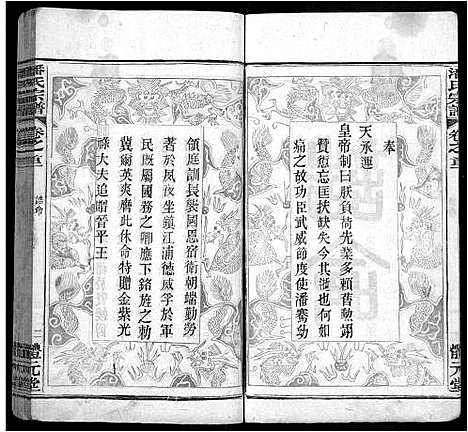 奉
天承運
皇帝制曰朕負荷先業多賴舊勲翊
贊愆忘匡扶缺失今其逝也何如
痛之故功臣武威節度使潘鶱幼
領庭訓長襲國恩宿衛朝端勤勞
著於夙夜坐鎮江浦德威孚於軍
民既屬國務之翺應下銘旌之勅
冀爾英爽膺此休命特贈金紫光
祿大夫追諡晉平王
潘氏宗譜
卷之首
體元堂
潘氏宗譜
卷之首
誥命
二
體元堂